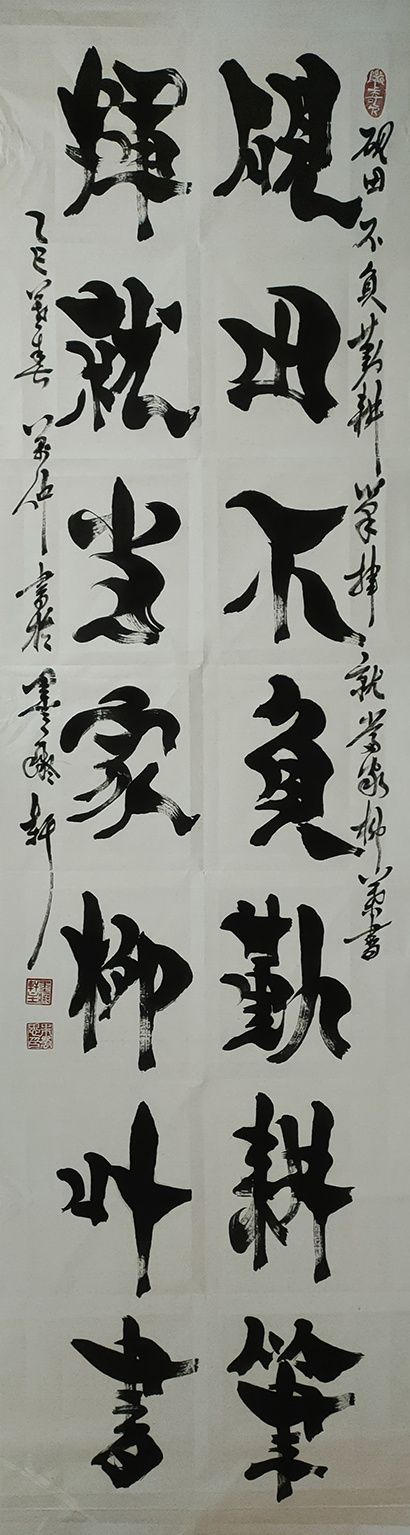 硯田不負勤耕筆揮就當家柳葉書
硯田不負勤耕筆
揮就当家柳叶書
乙巳春書於墨軒